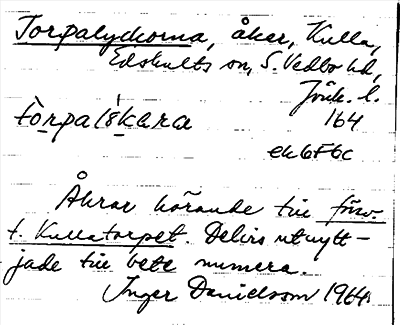 Torpalyckorna, åker, Kulla,
Edshults sn, S. Vedbo hd,
Jönk. l.
164
torpalykkara
ek6F6c
Åkrar hörande tillförv.
t. Kullatorpet. Delvis utnytt-
jade till bete numera.
Inger Danielsson 1964